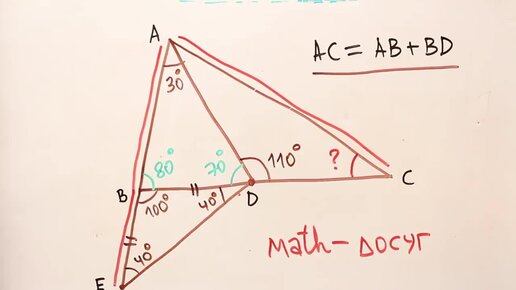 A
AC = AB + BD
30°
80°
70°
110°
?
B
100°
40°
D
C
40°
E
math - досуг